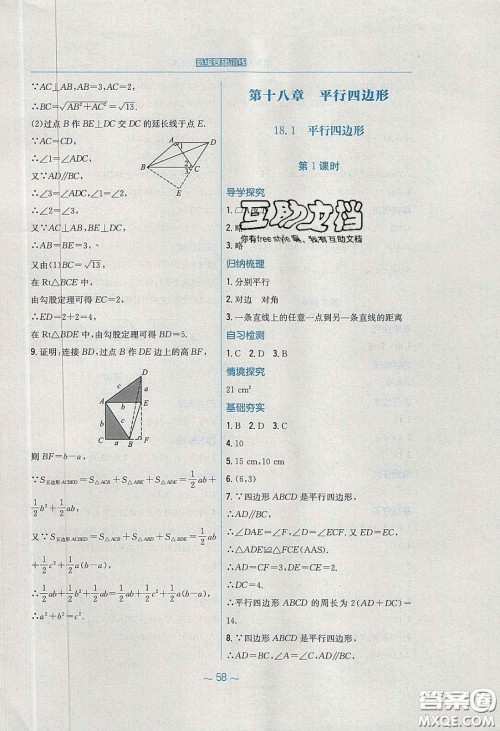 新编基础训练
∵AC⊥AB,AB=3,AC=2,
∴BC=√AB²+AC²=√13.
(2)过点B作BE⊥DC交DC的延长线于点E.
∵AB⊥AC,
∴∠1=∠ADC,
又∵AD∥BC,
∴∠2=∠ADC,
又∵AC∥BD,
∴∠3=∠1,
∴∠2=∠3,
∴AB=BE=3.
又由(1)BC=√13,
在Rt△BCE中,
由勾股定理可得EC=2,
∴ED=2+2=4,
在Rt△BDE中,由勾股定理可得BD=5.
9.证明:连接BD,过点B作DE边上的高BF,
则BF=b-a,
∵S五边形ACBED=S△ACB+S△ABE+S△ADE=1/2ab+
1/2b²+1/2ab,
又∵S五边形ACBED=S△ACB+S△ABD+S△BDE=1/2ab+
1/2c²+1/2a(b-a),
∴1/2ab+1/2b²+1/2ab=1/2ab+1/2c²+1/2a(b-a),
∴a²+b²=c².
第十八章 平行四边形
18.1 平行四边形
第1课时
导学探究
2.略
3.略
归纳梳理
1.分别平行
2.对边 对角
3.一条直线上的任意一点到另一条直线的距离
自习检测
1.C 2.D 3.B
情境探究
21 cm²
基础夯实
1.B 2.D 3.C
4.10
5.15 cm,10 cm
6.(6,3)
7.∵四边形ABCD是平行四边形,
∴AD∥BC,
∴∠DAE=∠F,∠D=∠ECF.又ED=EC,
∴△ADE≌△FCE(AAS).
∴AD=CF=3,DE=CE=2.
∴DC=4.
∴平行四边形ABCD的周长为2(AD+DC)=
14.
8.∵四边形ABCD是平行四边形,
∴AD=BC,AD∥BC,
互助文档
你有free style嘛,我有互助文档
~58~
答案圈
MXQE.COM